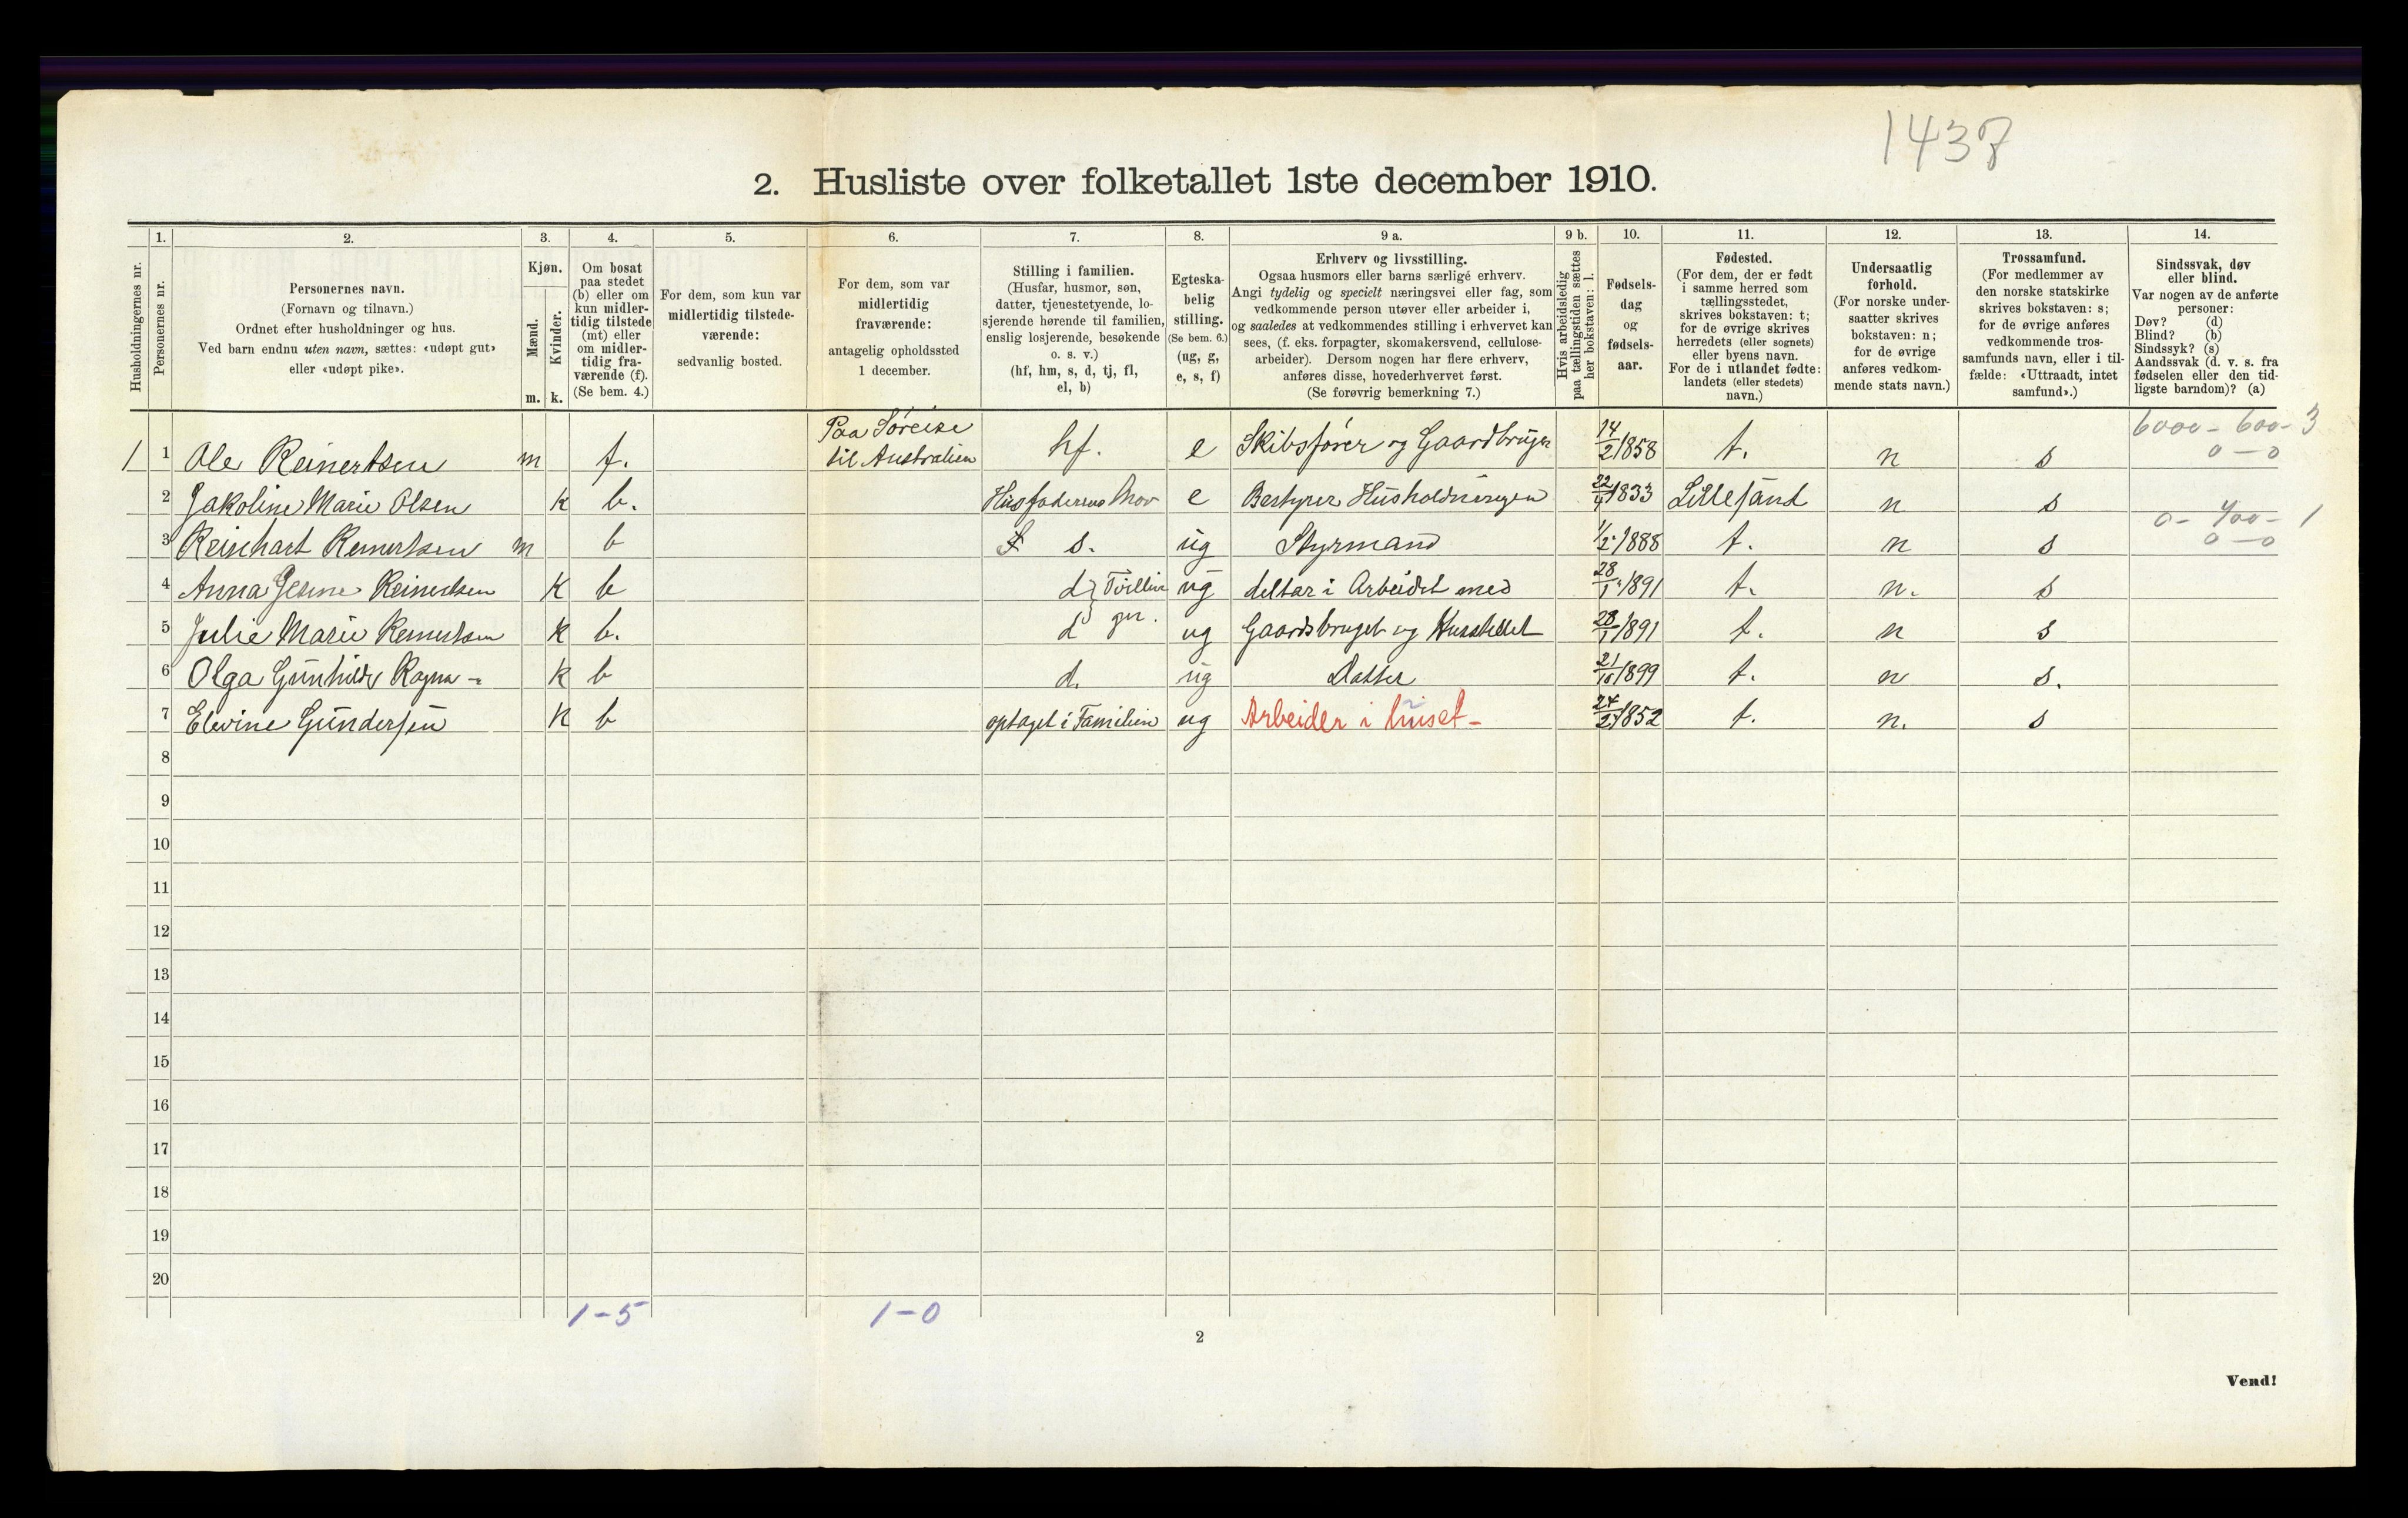 1438
2. Husliste over folketallet 1ste december 1910.
Husholdningernes nr.
1.
Personernes nr.
2.
Personernes navn.
(Fornavn og tilnavn.)
Ordnet efter husholdninger og hus.
Ved barn endnu uten navn, sættes: «udøpt gut»
eller «udøpt pike».
3.
Kjøn.
Mænd.
Kvinder.
m. k.
4.
Om bosat
paa stedet
(b) eller om
kun midler-
tidig tilstede
(mt) eller
om midler-
tidig fra-
værende (f).
(Se bem. 4.)
5.
For dem, som kun var
midlertidig tilstede-
værende:
sedvanlig bosted.
6.
For dem, som var
midlertidig
fraværende:
antagelig opholdssted
1 december.
7.
Stilling i familien.
(Husfar, husmor, søn,
datter, tjenestetyende, lo-
sjerende hørende til familien,
enslig losjerende, besøkende
o. s. v.)
(hf, hm, s, d, tj, fl,
el, b)
8.
Egteska-
belig
stilling.
(Se bem. 6.)
(ug, g,
e, s, f)
9 a.
Erhverv og livsstilling.
Ogsaa husmors eller barns særlige erhverv.
Angi tydelig og specielt næringsvei eller fag, som
vedkommende person utøver eller arbeider i,
og saaledes at vedkommendes stilling i erhvervet kan
sees, (f. eks. forpagter, skomakersvend, cellulose-
arbeider). Dersom nogen har flere erhverv,
anføres disse, hovederhvervet først.
(Se forøvrig bemerkning 7.)
9 b.
Hvis arbeidsledig
paa tællingstiden sættes
her bokstaven: l.
10.
Fødsels-
dag
og
fødsels-
aar.
11.
Fødested.
(For dem, der er født
i samme herred som
tællingsstedet,
skrives bokstaven: t;
for de øvrige skrives
herredets (eller sognets)
eller byens navn.
For de i utlandet fødte:
landets (eller stedets)
navn.)
12.
Undersaatlig
forhold.
(For norske under-
saatter skrives
bokstaven: n;
for de øvrige
anføres vedkom-
mende stats navn.)
13.
Trossamfund.
(For medlemmer av
den norske statskirke
skrives bokstaven: s;
for de øvrige anføres
vedkommende tros-
samfunds navn, eller i til-
fælde: «Uttraadt, intet
samfund».)
14.
Sindssvak, døv
eller blind.
Var nogen av de anførte
personer:
Døv? (d)
Blind? (b)
Sindssyk? (s)
Aandssvak (d. v. s. fra
fødselen eller den tid-
ligste barndom)? (a)
6000 - 600 - 3
0 - 0
1 1 Ole Reinertsen m f. Paa Søreise til Australien hf. e Skibsfører og Gaardbruger 14/2 1858 t. n s
2 Jakoline Marie Olsen k b. Husfaderens Mor e Bestyrer Husholdningen 22/4 1833 Lillesand n s
0 - 400 - 1
0 - 0
3 Reinhart Reinertsen m b s. ug Styrmand 1/2 1888 t. n s
4 Anna Jesine Reinertsen k b d Tvillin ug deltar i Arbeidet med 28/1 1891 t. n. s
5 Julie Marie Reinertsen k b. d ger. ug Gaardsbruget og Husstellet 28/1 1891 t. n s
6 Olga Gunhilde Ragna - k b d. ug Datter 21/10 1899 t. n s.
7 Elevine Gundersen k b optaget i Familien ug Arbeider i huset - 24/2 1852 t. n. s
8
9
10
11
12
13
14
15
16
17
18
19
20
1-5 1-0
2
Vend!